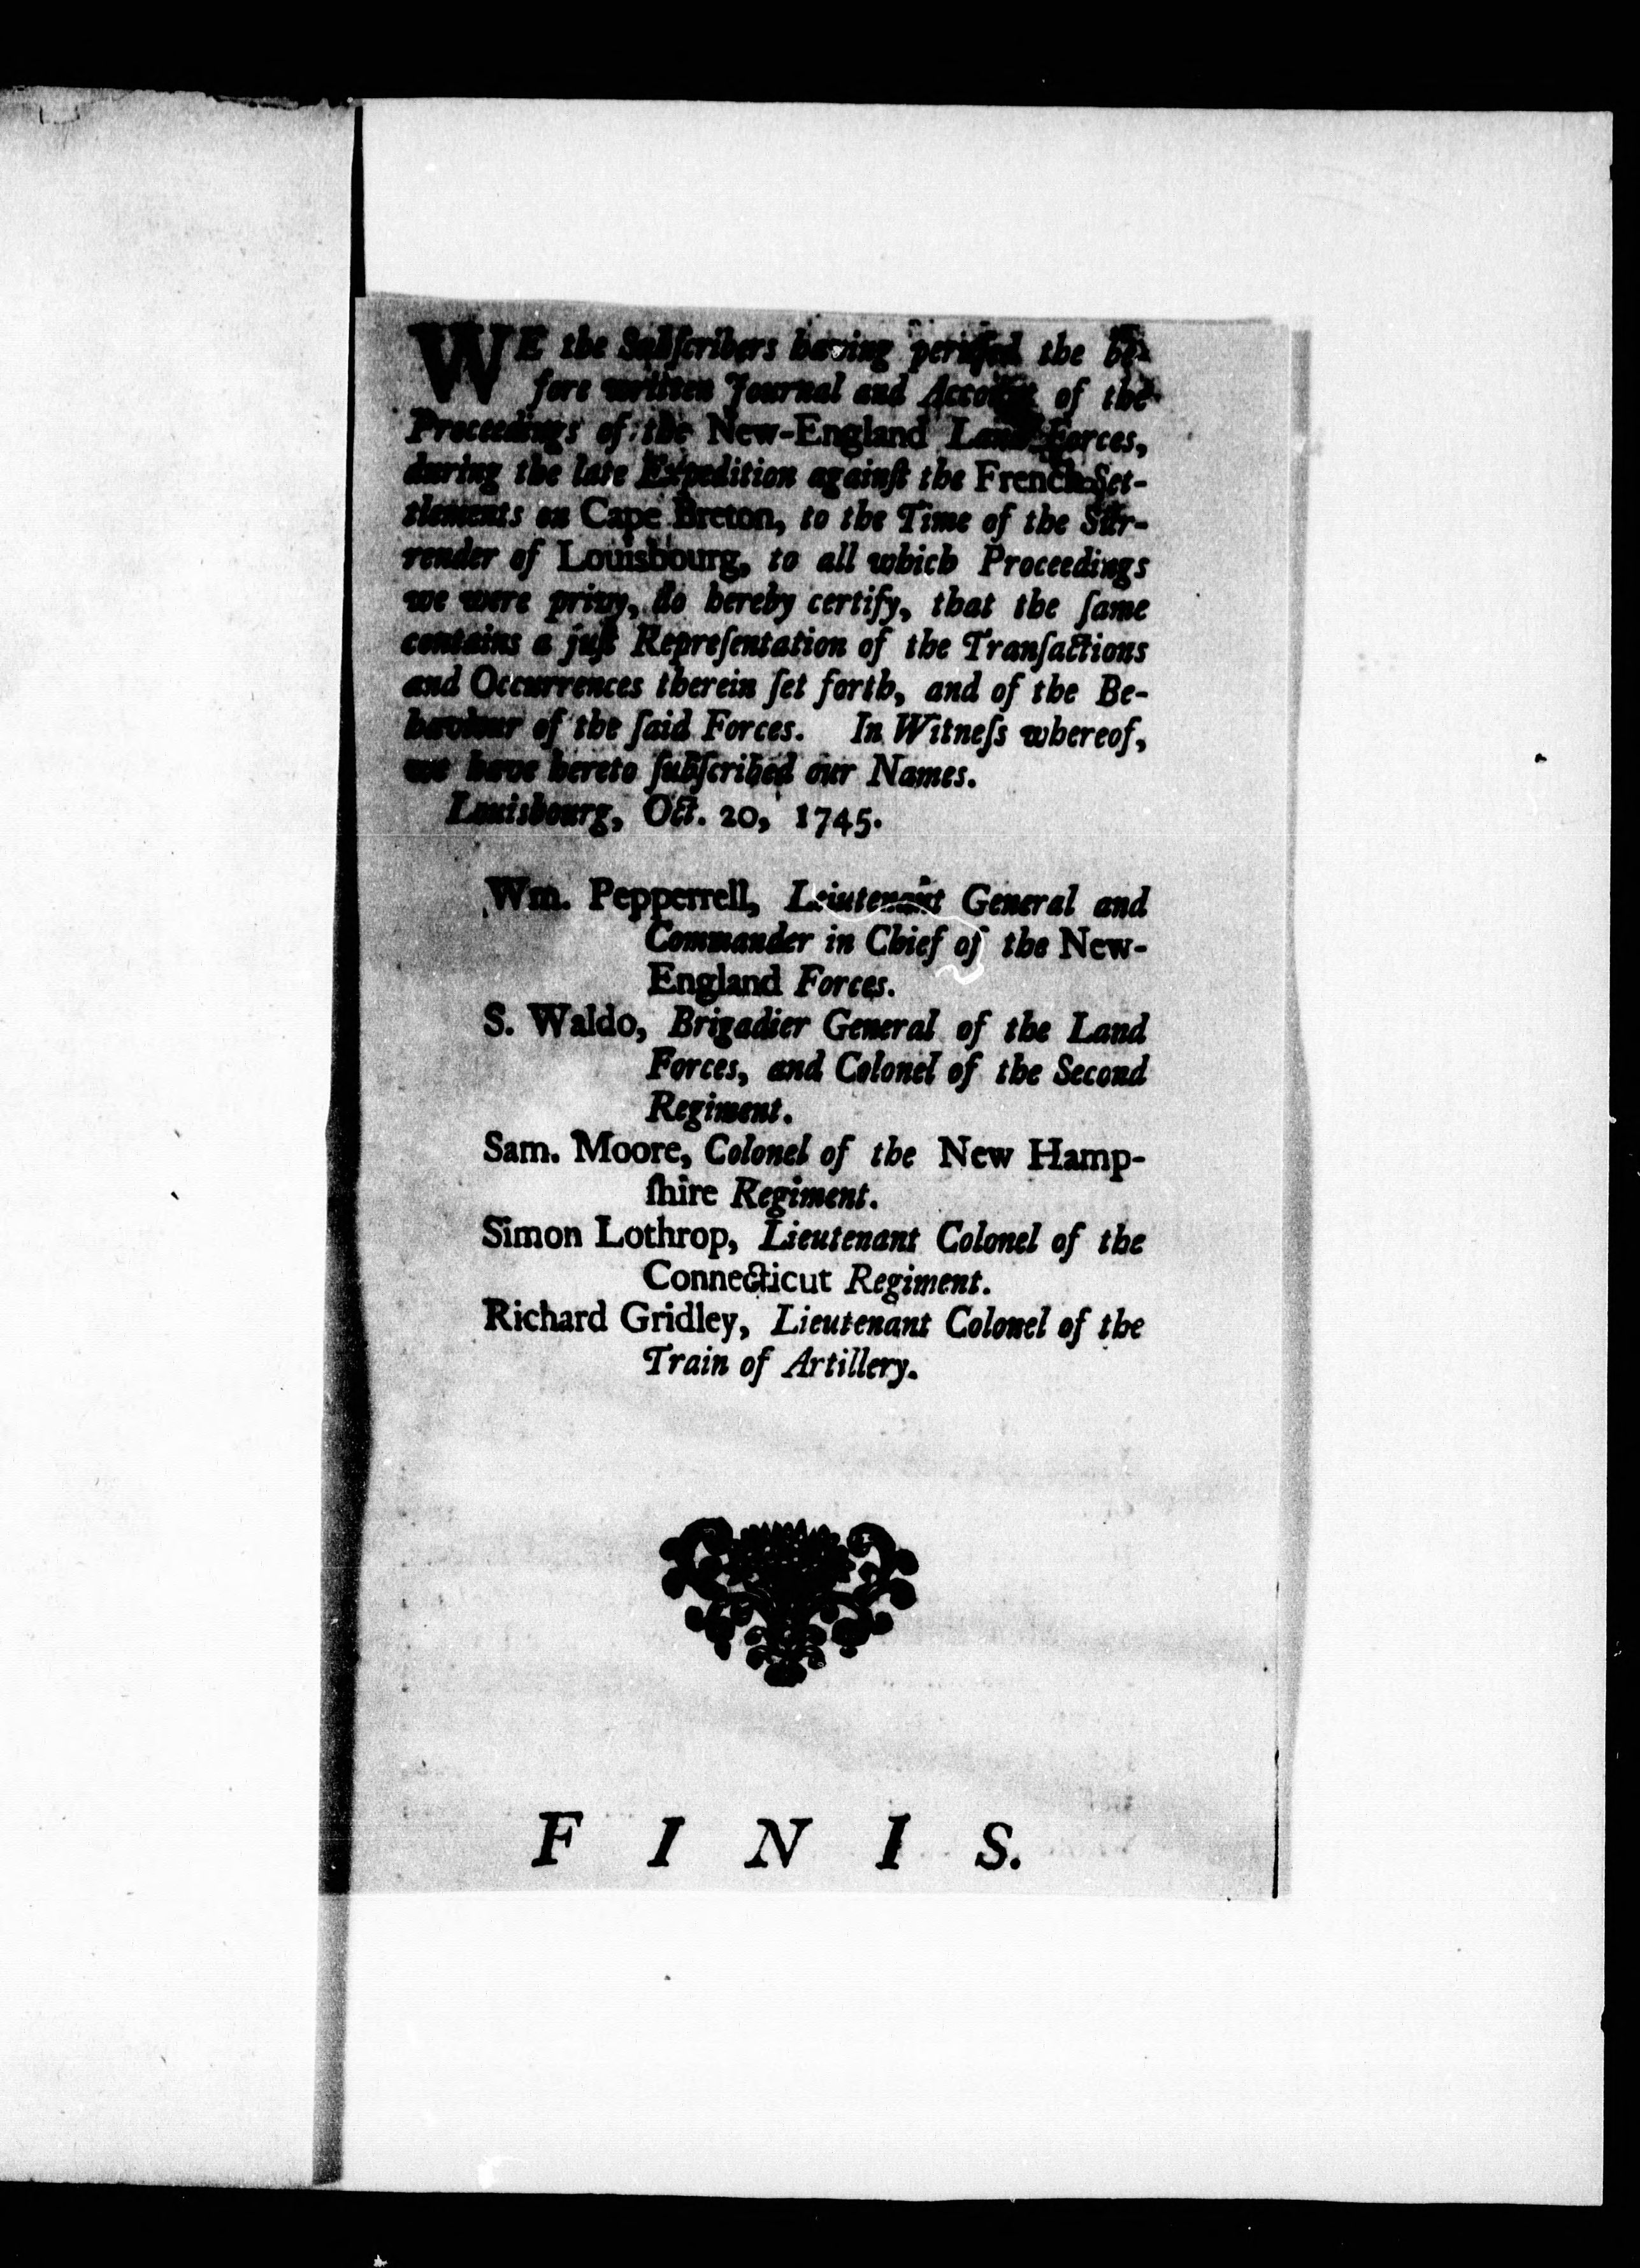 WE the Subſcribers having peruſed the be-
fore written Journal and Account of the
Proceedings of the New-England Land Forces,
during the late Expedition againſt the French Set-
tlements on Cape Breton, to the Time of the Sur-
render of Louisbourg, to all which Proceedings
we were privy, do hereby certify, that the ſame
contains a juſt Repreſentation of the Tranſactions
and Occurrences therein ſet forth, and of the Be-
haviour of the ſaid Forces. In Witneſs whereof,
we have hereto ſubſcribed our Names.
Louisbourg, Oct. 20, 1745.
Wm. Pepperrell, Leiutenant General and
Commander in Chief of the New-
England Forces.
S. Waldo, Brigadier General of the Land
Forces, and Colonel of the Second
Regiment.
Sam. Moore, Colonel of the New Hamp-
ſhire Regiment.
Simon Lothrop, Lieutenant Colonel of the
Connecticut Regiment.
Richard Gridley, Lieutenant Colonel of the
Train of Artillery.
F I N I S.